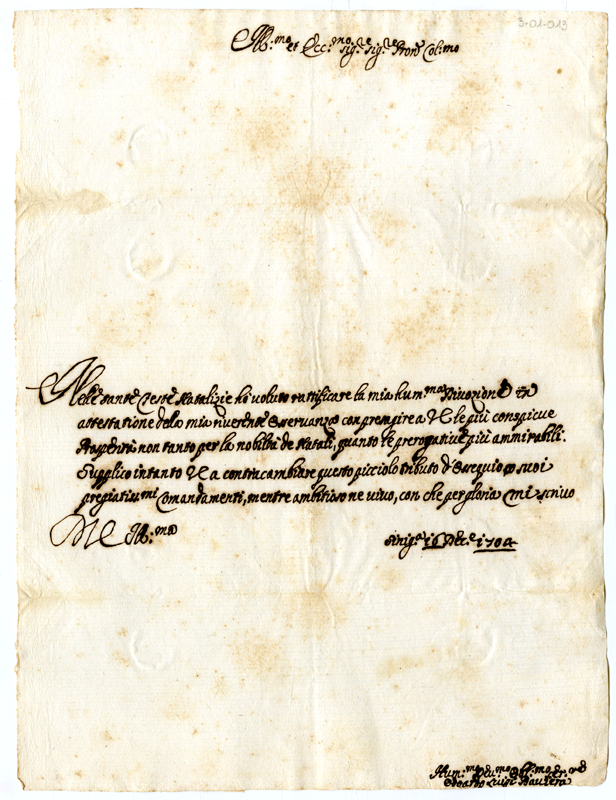 3-01-013
Ill:mo et Ecc:mo Sig:e Sig:e Pron Col:mo
Nelle sante Feste Natalizie hò voluto rattificare la mia hum:ma Divozione in
attestatione della mia riverente osservanza con preggare a VE le più conspicue
Prosperità non tanto per la nobiltà de Natali, quanto le prerogative più ammirabili.
Supplico intanto VE a contracambiare questo picciolo tributo d'Ossequio co suoi
pregiatiss:mi Comandamenti, mentre ambitioso ne vivo, con che per gloria mi scrivo
D VE Ill:ma
16 Dec:e 1704
Hum:mo Deu:mo Obl:mo Ser:re
Luigi